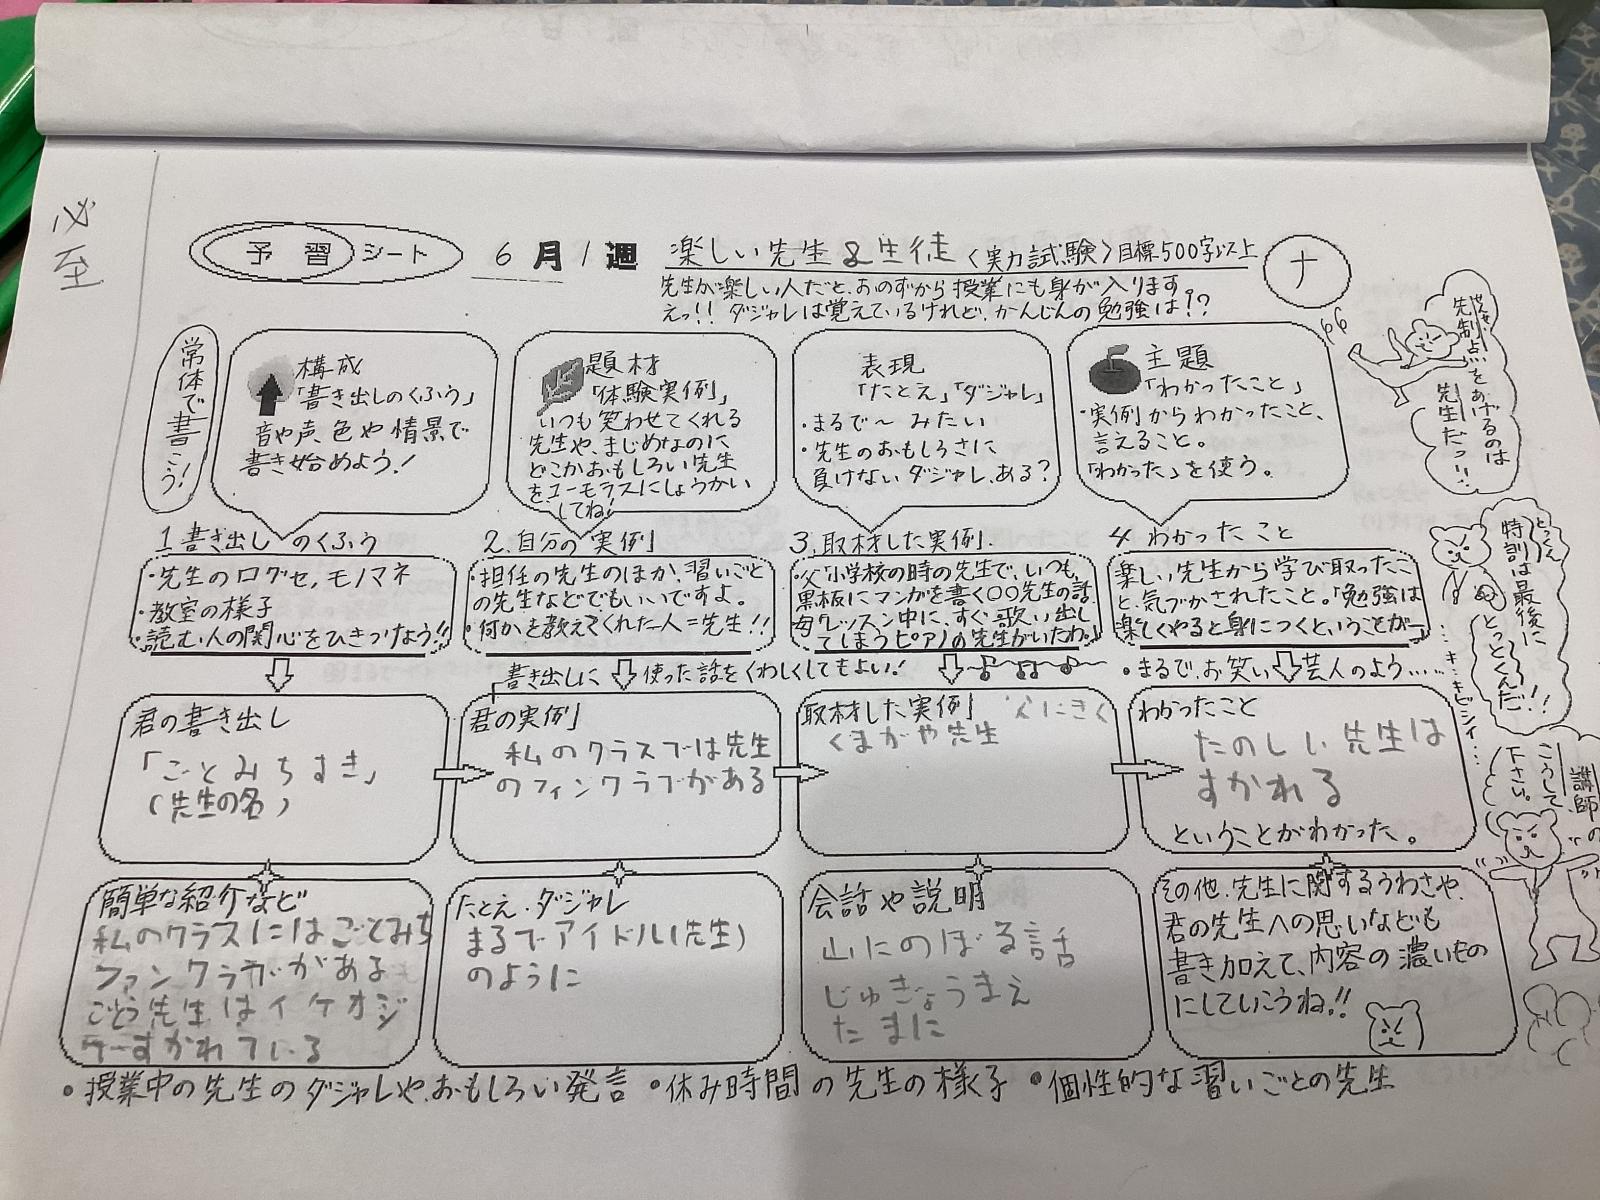 必至
予習シート
6月1週
楽しい先生&生徒〈実力試験〉目標500字以上
ナ
先生が楽しい人だと、おのずから授業にも身が入ります。
えっ!! ダジャレは覚えているけれど、かんじんの勉強は!?
常体で書こう!
構成
「書き出しのくふう」
音や声、色や情景で
書き始めよう!
題材
「体験実例」
いつも笑わせてくれる
先生や、まじめなのに
どこかおもしろい先生
をユーモラスにしょうかい
してね!
表現
「たとえ」「ダジャレ」
・まるで〜みたい
・先生のおもしろさに
負けないダジャレ、ある?
主題
「わかったこと」
・実例からわかったこと、
言えること。
「わかった」を使う。
先制点をあげるのは
先生だっ!!
1 書き出しのくふう
・先生の口グセ,モノマネ
・教室の様子
・読む人の関心をひきつけよう!!
2.自分の実例
・担任の先生のほか、習いごと
の先生などでもいいですよ。
・何かを教えてくれた人=先生!!
3.取材した実例.
・父「小学校の時の先生で、いつも、
黒板にマンガを書く〇〇先生の話
母「レッスン中に、すぐ歌い出し
てしまうピアノの先生がいたわ。」
4 わかったこと
楽しい先生から学び取ったこ
と、気づかされたこと。「勉強は
楽しくやると身につくということが〜」
とっくん
特訓は最後に
とっとくんだ!!
・・・キ・・・キビシイ・・・
書き出しに使った話をくわしくしてもよい!
・まるで、お笑い芸人のよう……
君の書き出し
「ごとみちすき」
(先生の名)
君の実例
私のクラスでは先生
のファンクラブがある
取材した実例 父にきく
くまがや先生
わかったこと
たのしい先生は
すかれる
ということがわかった。
講師の
こうして
下さい。
簡単な紹介など
私のクラスにはごとみち
ファンクラブがある
ごとう先生はイケオジ
すかれている
たとえ・ダジャレ
まるでアイドル(先生)
のように
会話や説明
山にのぼる話
じゅぎょうまえ
たまに
その他、先生に関するうわさや、
君の先生への思いなども
書き加えて、内容の濃いもの
にしていこうね!!
・授業中の先生のダジャレや、おもしろい発言 ・休み時間の先生の様子 ・個性的な習いごとの先生